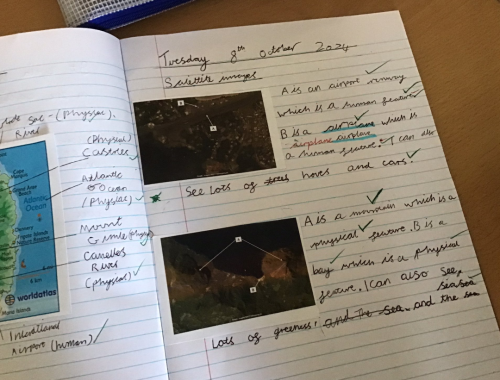 (Physical).
River
(Physical)
Castries
Atlantic
Ocean
(Physical)
Mount
Gimie (Physical)
Canelles
River
(Physical)
Atlantic
Ocean
6 km
worldatlas
Airport (human)
Tuesday 8th October 2024
Satellite images
A is an airport runway
which is a human feature
B is a airplane
airplane airplane
a human feature. I can also
See Lots of trees hoves and cars.
A is a mountain which is a
physical feature. B is a
bay which is a physical
feature. I can also see,
seaside
Lots of greeness, and the sea. and the sea